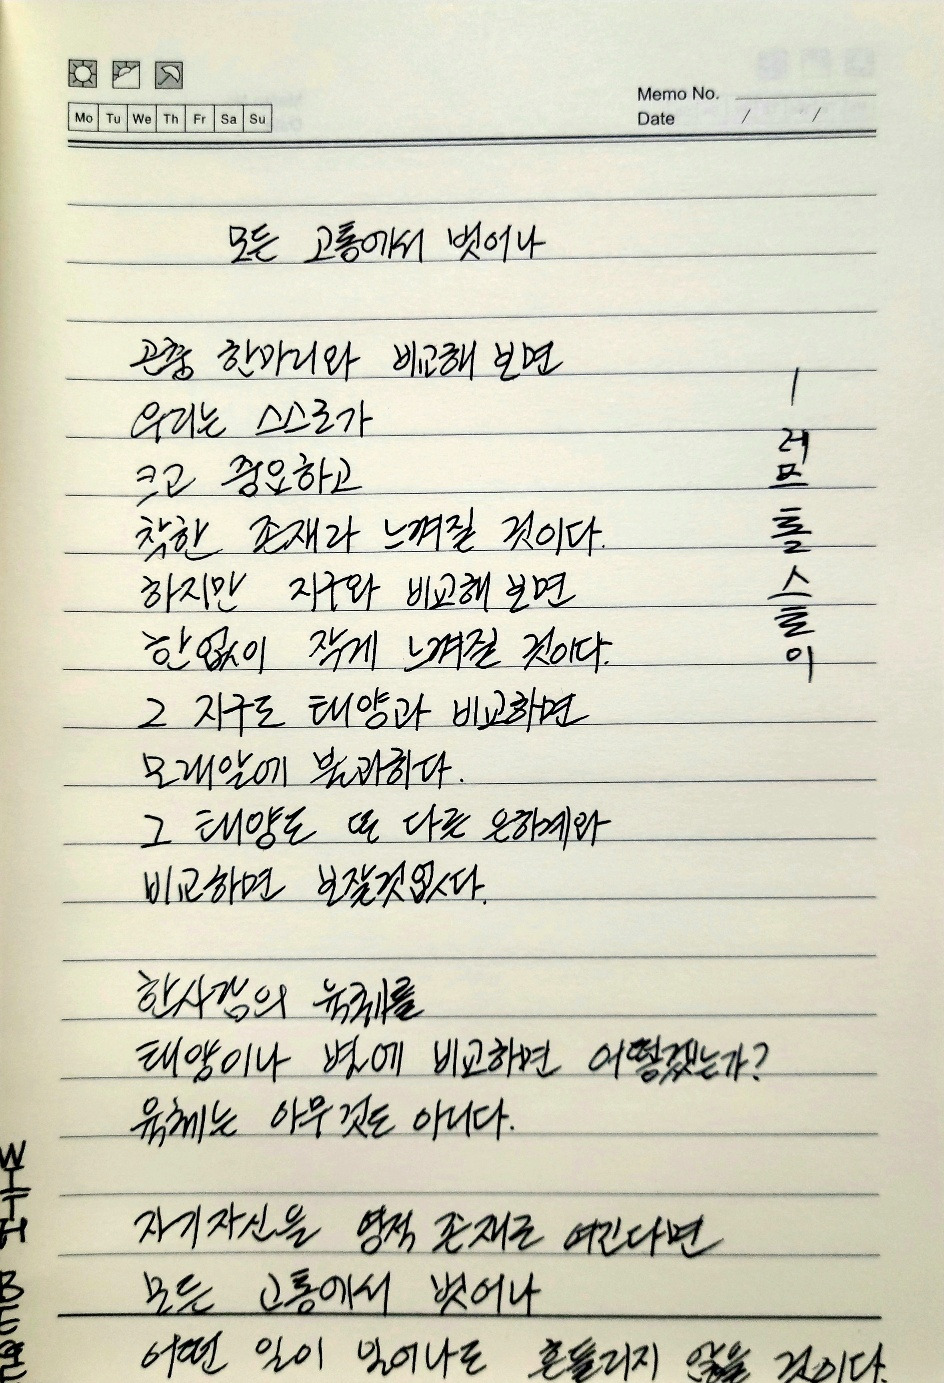 Memo No.
Mo Tu We Th Fr Sa Su
Date / /
모든 고통에서 벗어나
곤충 한마리와 비교해 보면
우리는 스스로가
크고 중요하고
착한 존재라 느껴질 것이다.
하지만 지구와 비교해 보면
한없이 작게 느껴질 것이다.
그 지구도 태양과 비교하면
모래알에 불과하다.
그 태양도 또 다른 은하계와
비교하면 보잘것없다.
한사람의 육체를
태양이나 별에 비교하면 어떻겠는가?
육체는 아무것도 아니다.
자기자신을 영적 존재로 여긴다면
모든 고통에서 벗어나
어떤 일이 일어나도 흔들리지 않을 것이다.
- 레프 톨스토이
WITH